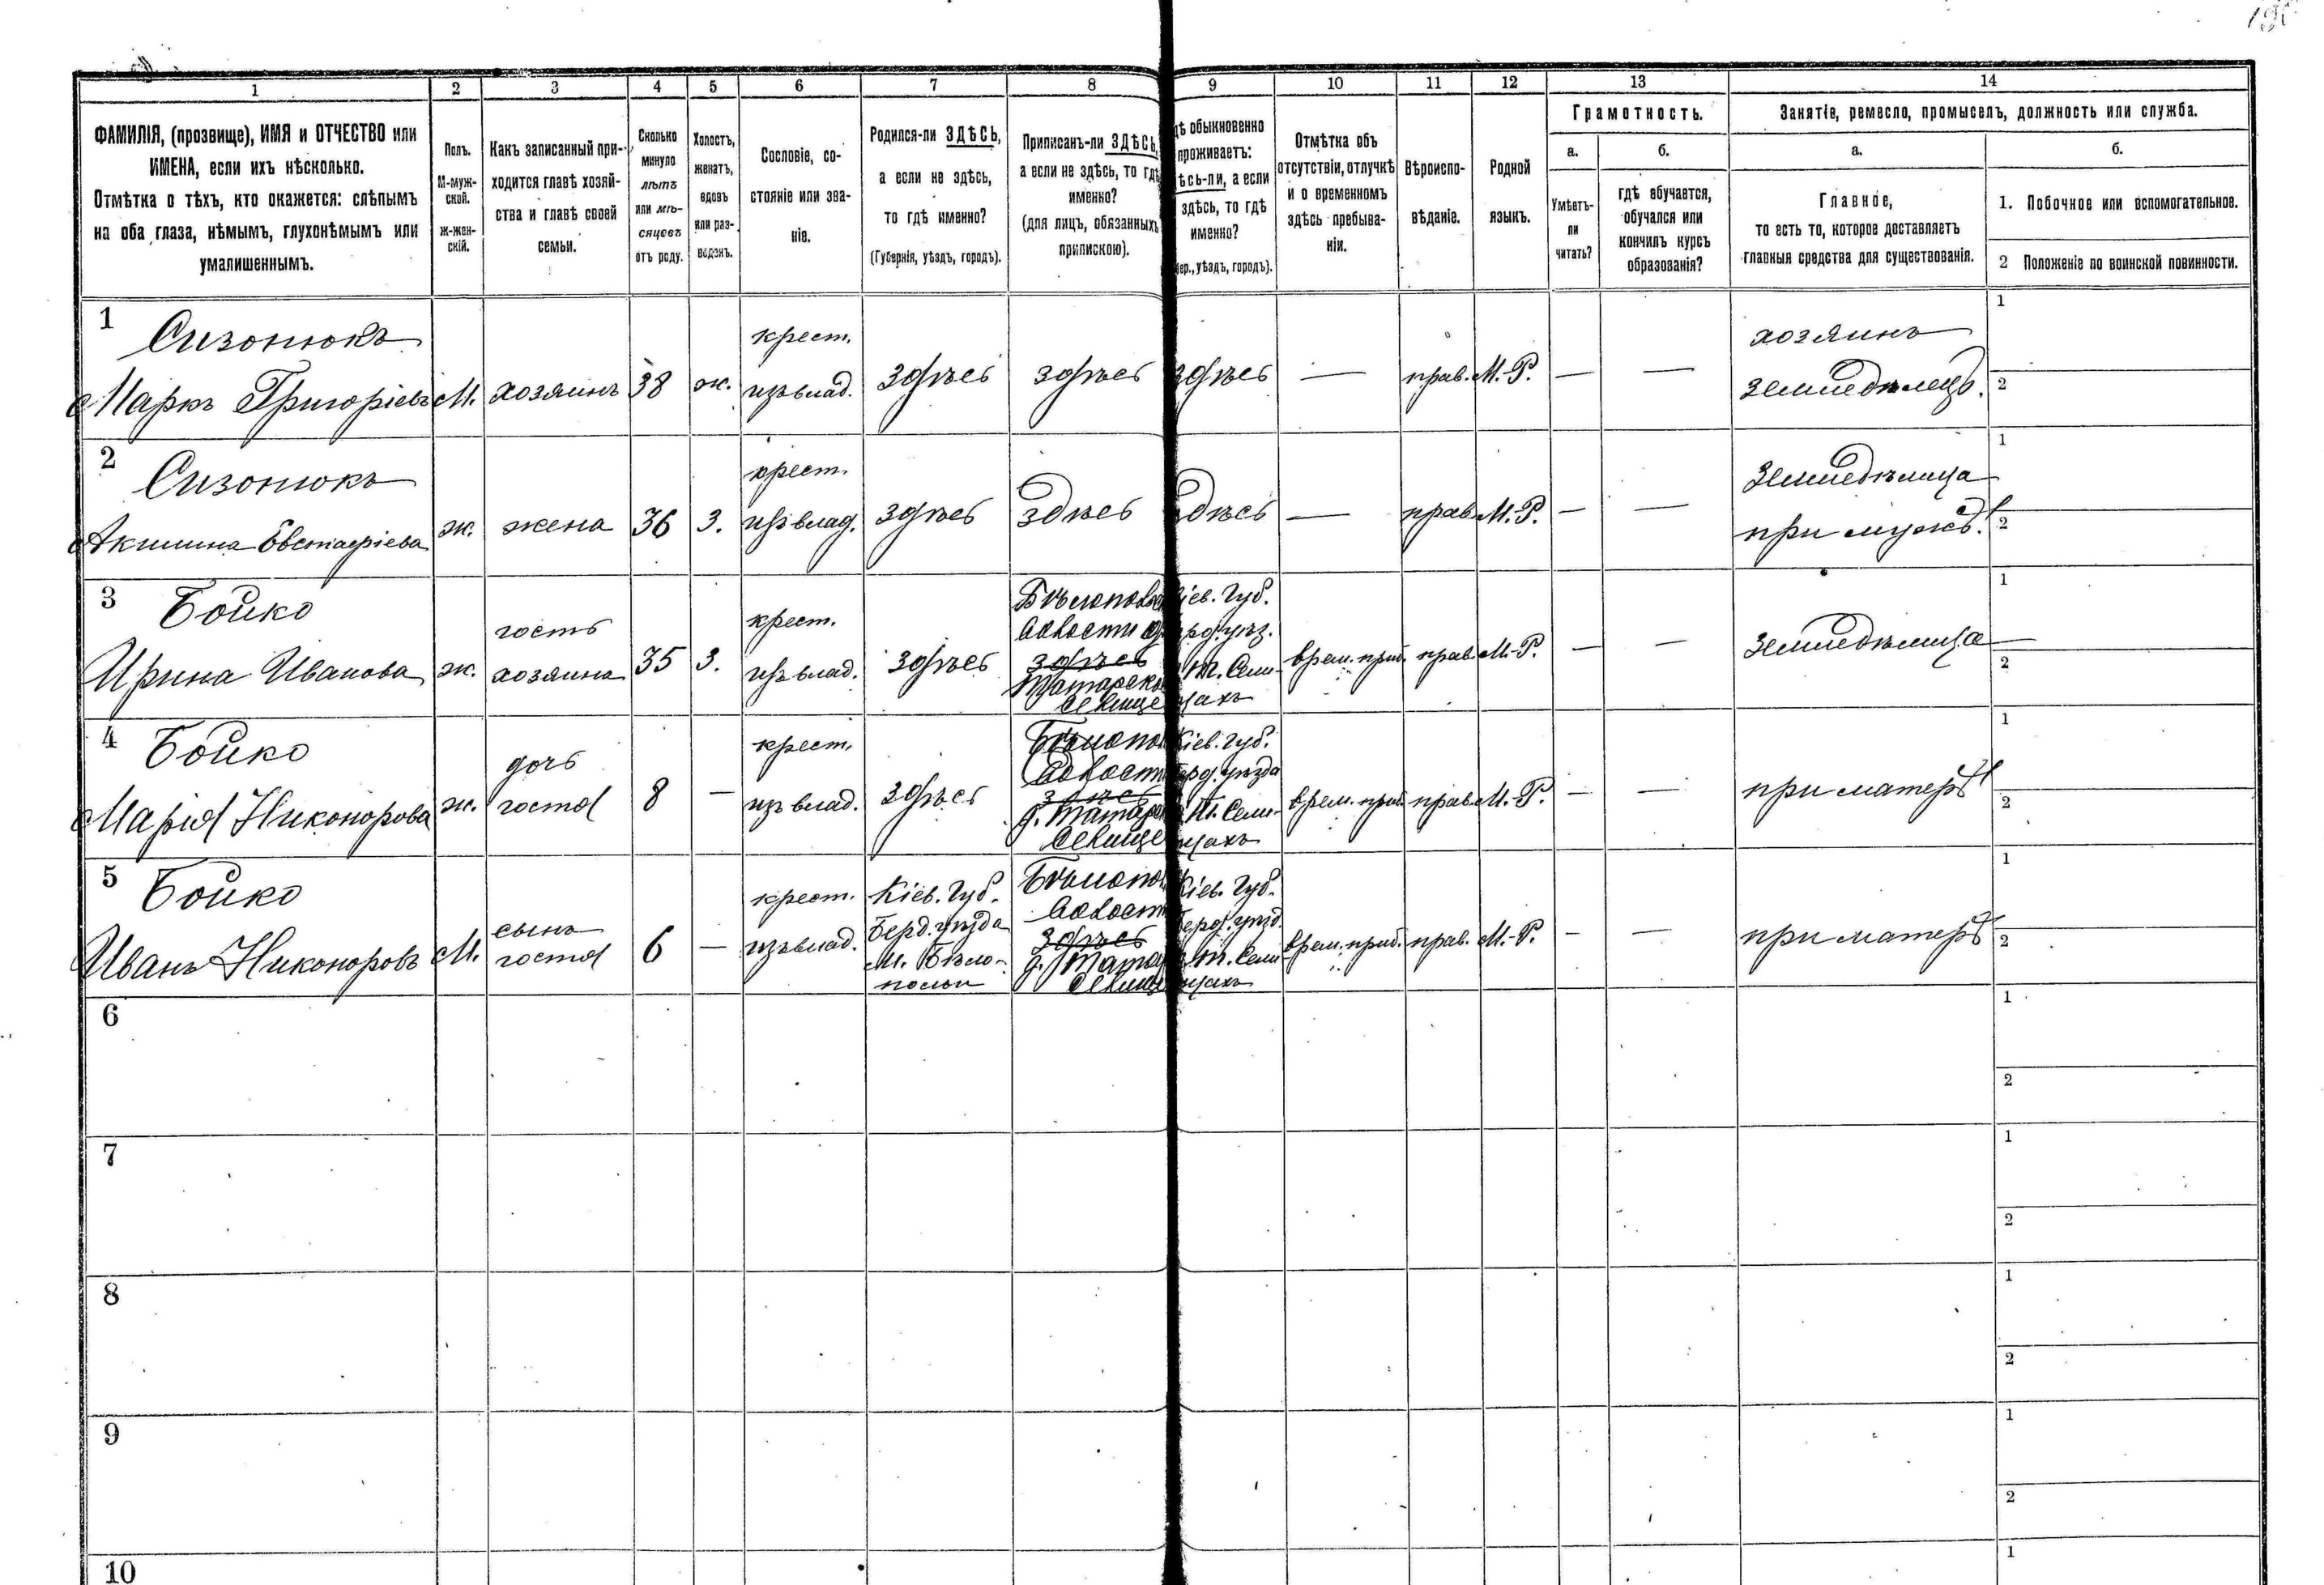 1 2 3 4 5 6 7 8 9 10 11 12 13 14
ФАМИЛІЯ, (прозвище), ИМЯ и ОТЧЕСТВО или
ИМЕНА, если ихъ нѣсколько.
Отмѣтка о тѣхъ, кто окажется: слѣпымъ
на оба глаза, нѣмымъ, глухонѣмымъ или
умалишеннымъ.
Полъ.
М-муж-
ской.
ж-жен-
скій.
Какъ записанный при-
ходится главѣ хозяй-
ства и главѣ своей
семьи.
Сколько
минуло
лѣтъ
или мѣ-
сяцевъ
отъ роду.
Холостъ,
женатъ,
вдовъ
или раз-
веденъ.
Сословіе, со-
стояніе или зва-
ніе.
Родился-ли ЗДѢСЬ,
а если не здѣсь,
то гдѣ именно?
(Губернія, уѣздъ, городъ).
Приписанъ-ли ЗДѢСЬ,
а если не здѣсь, то гдѣ
именно?
(для лицъ, обязанныхъ
припискою).
дѣ обыкновенно
проживаетъ:
ѣсь-ли, а если
здѣсь, то гдѣ
именно?
бер., уѣздъ, городъ).
Отмѣтка объ
отсутствіи, отлучкѣ
и о временномъ
здѣсь пребыва-
ніи.
Вѣроиспо-
вѣданіе.
Родной
языкъ.
Грамотность.
а.
Умѣетъ-
ли
читать?
б.
гдѣ обучается,
обучался или
кончилъ курсъ
образованія?
Занятіе, ремесло, промыселъ, должность или служба.
а.
Главное,
то есть то, которое доставляетъ
главныя средства для существованія.
б.
1. Побочное или вспомогательное.
2 Положеніе по воинской повинности.
1 Сизонюкъ крест. хозяинъ 1
Маркъ Григоріевъ М. хозяинъ 38 ж. изъ влад. здѣсь здѣсь здѣсь — прав. М.-Р. — — земледѣлецъ. 2
2 Сизонюкъ крест. Земледѣлица 1
Акилина Евстафіева ж. жена 36 З. изъ влад. здѣсь здѣсь здѣсь — прав. М.-Р. — — при мужѣ. 2
3 Бойко гость крест. 1
Ирина Иванова ж. хозяина 35 З. изъ влад. здѣсь врем. приб. прав. М.-Р. — — Земледѣлица 2
волости
здѣсь
іев. губ.
4 Бойко дочь крест. 1
Марія Никонорова ж. гостя 8 — изъ влад. здѣсь врем. приб. прав. М.-Р. — — при матерѣ 2
здѣсь
Кіев. губ.
5 Бойко сынъ крест. Кіев. губ. 1
Иванъ Никоноровъ М. гостя 6 — изъ влад. Берд. уѣзда врем. приб. прав. М.-Р. — — при матерѣ 2
М. Бѣло-
полья
здѣсь
Кіев. губ.
6 1
2
7 1
2
8 1
2
9 1
2
10 1